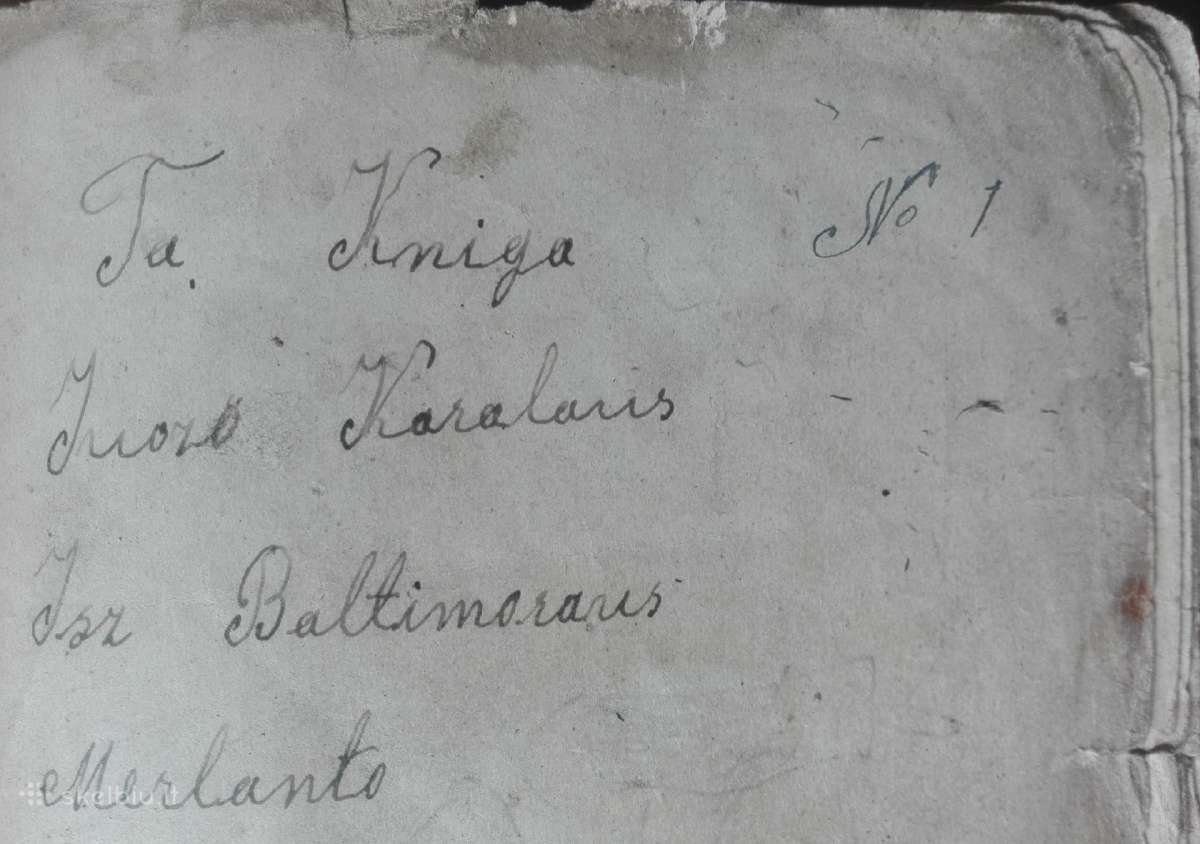 Ta. Kniga No 1
Juozo Karalaus
Isz Baltimoraus
Merlanto
skelbiu.lt